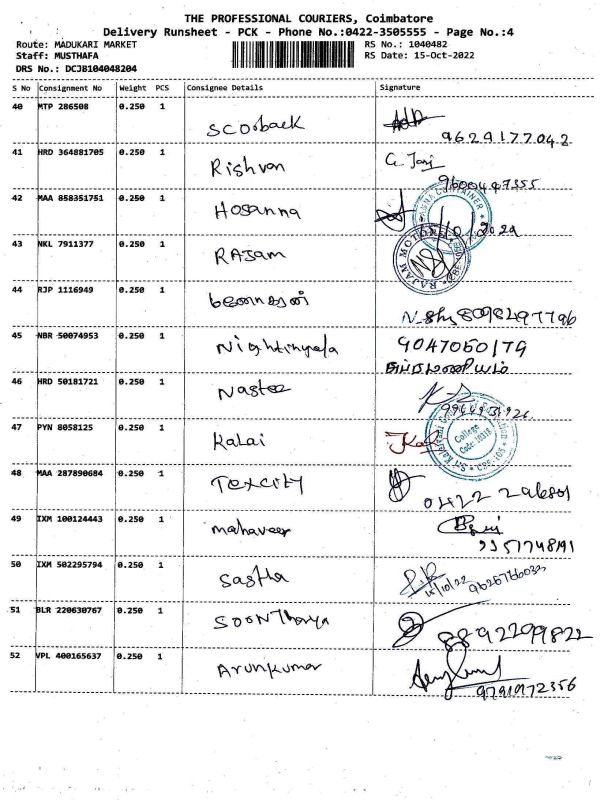 THE PROFESSIONAL COURIERS, Coimbatore
Delivery Runsheet - PCK - Phone No.:0422-3505555 - Page No.:4
Route: MADUKARI MARKET RS No.: 1040482
Staff: MUSTHAFA RS Date: 15-Oct-2022
DRS No.: DCJB104048204
S No Consignment No Weight PCS Consignee Details Signature
40 MTP 286508 0.250 1
scorback 9629177042
41 HRD 364881705 0.250 1
Rishvan 9600447355
42 MAA 858351751 0.250 1
Hosanna
43 NKL 7911377 0.250 1
RAJam RAJAM MOTORS
44 RJP 1116949 0.250 1
8098297796
45 NBR 50074953 0.250 1
9047060179
சுப்ரமணியம்
46 HRD 50181721 0.250 1
47 PYN 8058125 0.250 1
Kalai College
48 MAA 287890684 0.250 1
Texcity
49 IXM 100124443 0.250 1
mahaveer
50 IXM 502295794 0.250 1
sastha 15/10/22
51 BLR 220630767 0.250 1
8892299822
52 VPL 400165637 0.250 1
Arunkumar
9791972356